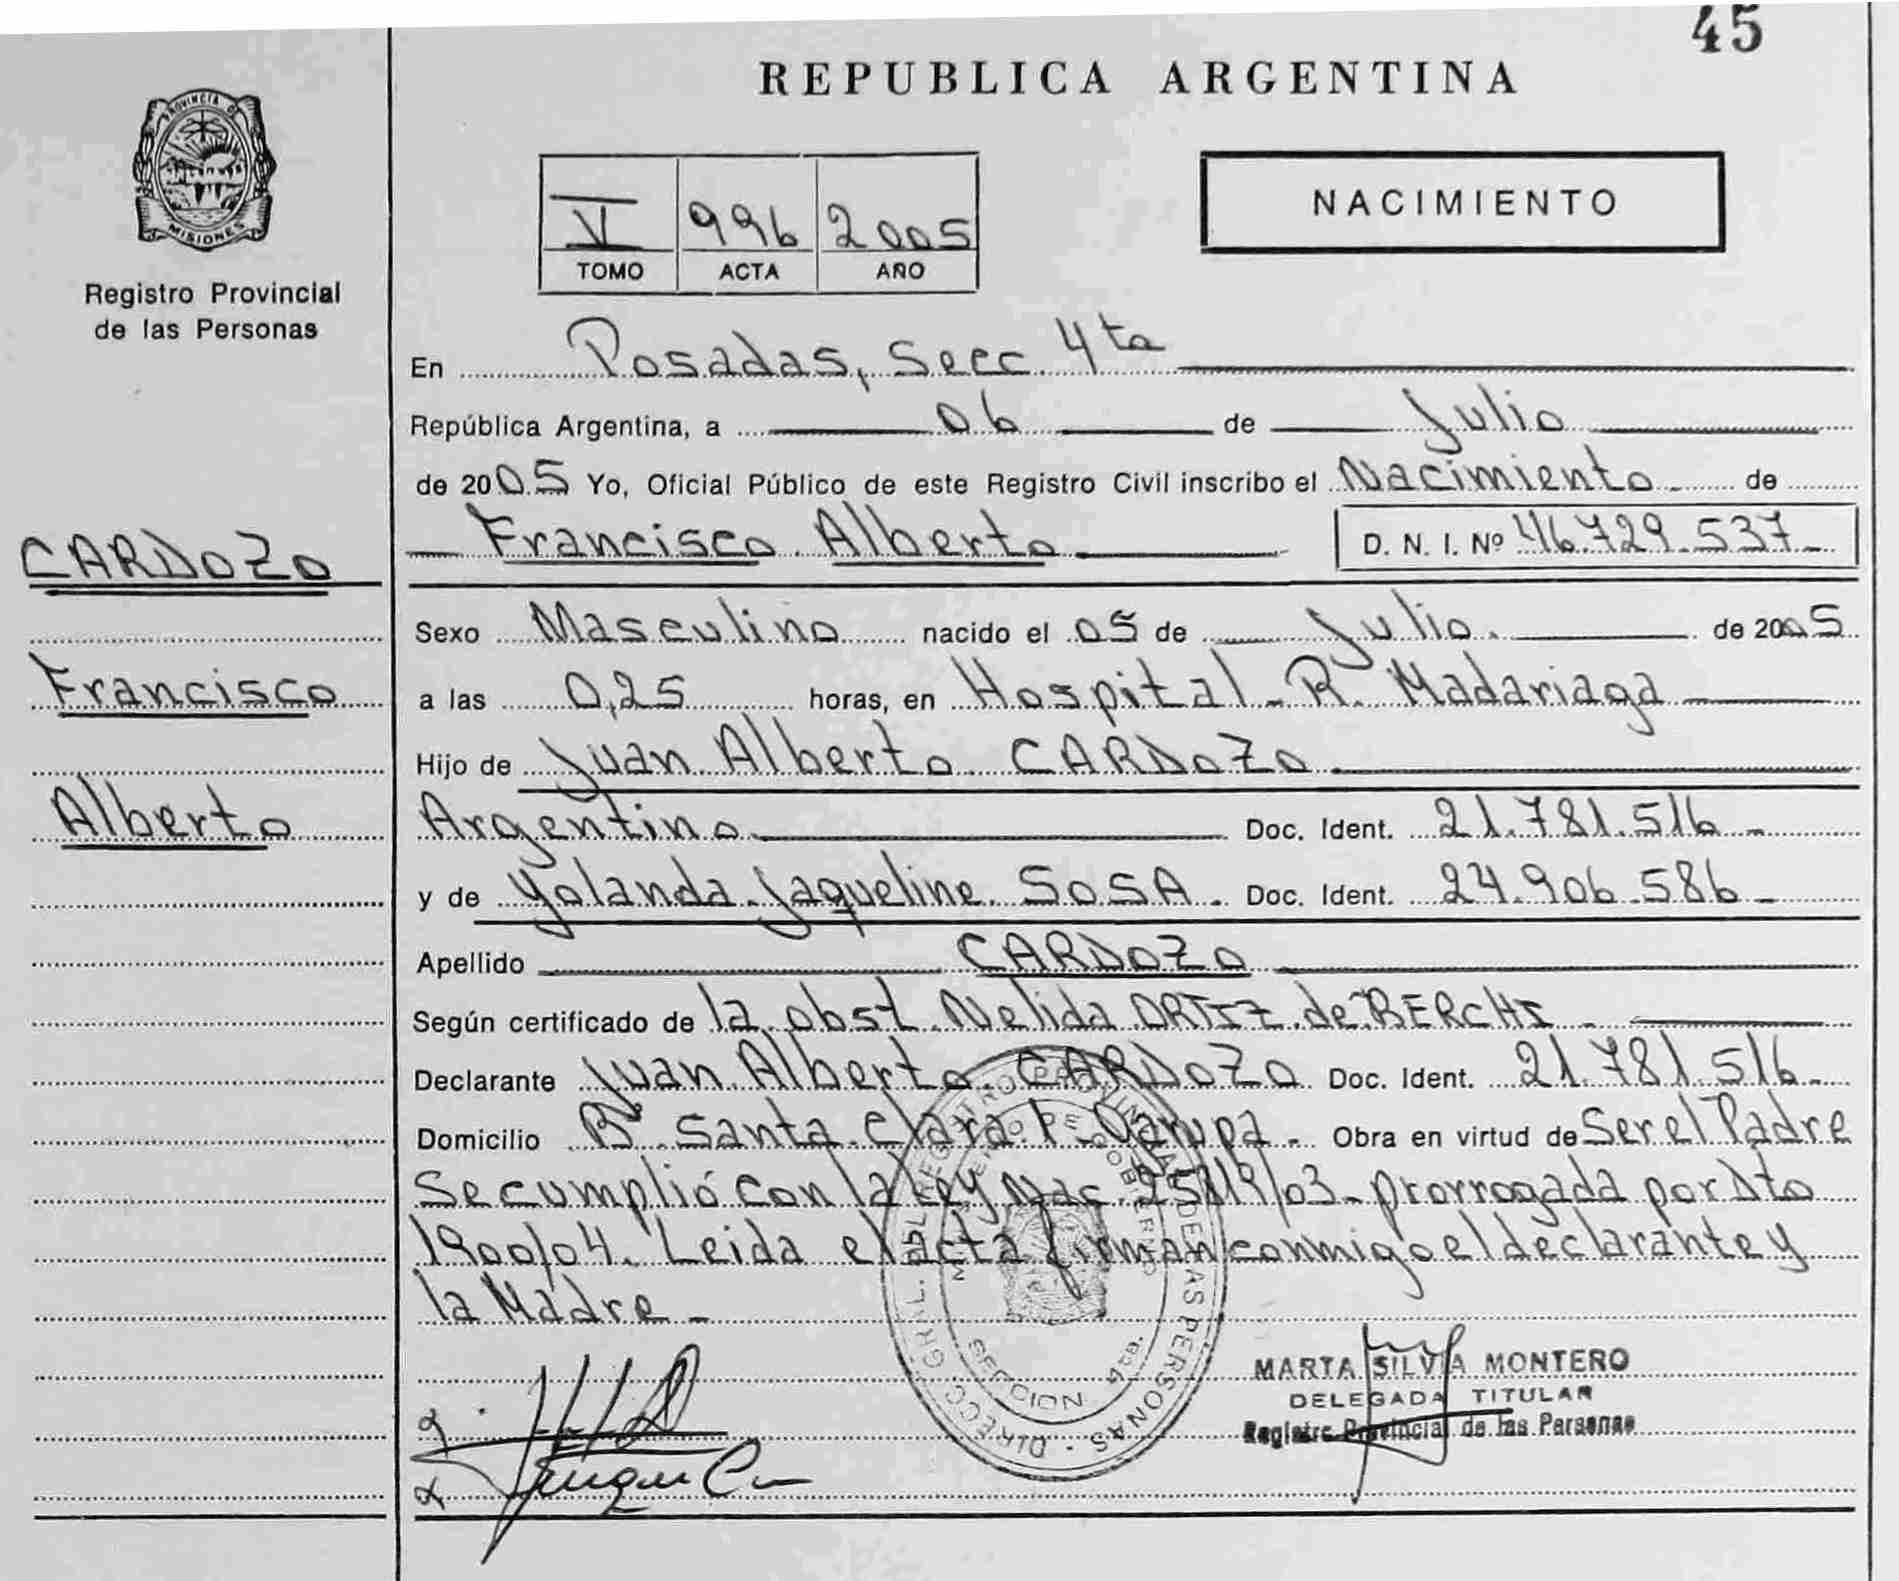 45
REPUBLICA ARGENTINA
PROVINCIA DE
MISIONES
Registro Provincial
de las Personas
V 996 2005
TOMO ACTA AÑO
NACIMIENTO
CARDOZO
Francisco
Alberto
En Posadas, Secc. 4ta
República Argentina, a 06 de Julio
de 2005 Yo, Oficial Público de este Registro Civil inscribo el Nacimiento de
Francisco Alberto D. N. I. Nº 46.729.537
Sexo Masculino nacido el 05 de Julio de 2005
a las 0,25 horas, en Hospital R. Madariaga
Hijo de Juan Alberto CARDOZO
Argentino Doc. Ident. 21.781.516
y de Yolanda Jaqueline SOSA Doc. Ident. 24.906.586
Apellido CARDOZO
Según certificado de la obst. Nelida ORTIZ de BERCHI
Declarante Juan Alberto CARDOZO Doc. Ident. 21.781.516
Domicilio Bº Santa Clara I Garupa Obra en virtud de Ser el Padre
Se cumplió con la Ley Nac. 25819/03 prorrogada por Dto
1900/04. Leida el acta firman conmigo el declarante y
la Madre
DIRECC. GRAL. DEL REGISTRO PROVINCIAL DE LAS PERSONAS
MINISTERIO DE GOBIERNO
SECCION 4ta.
MARTA SILVIA MONTERO
DELEGADA TITULAR
Registro Provincial de las Personas